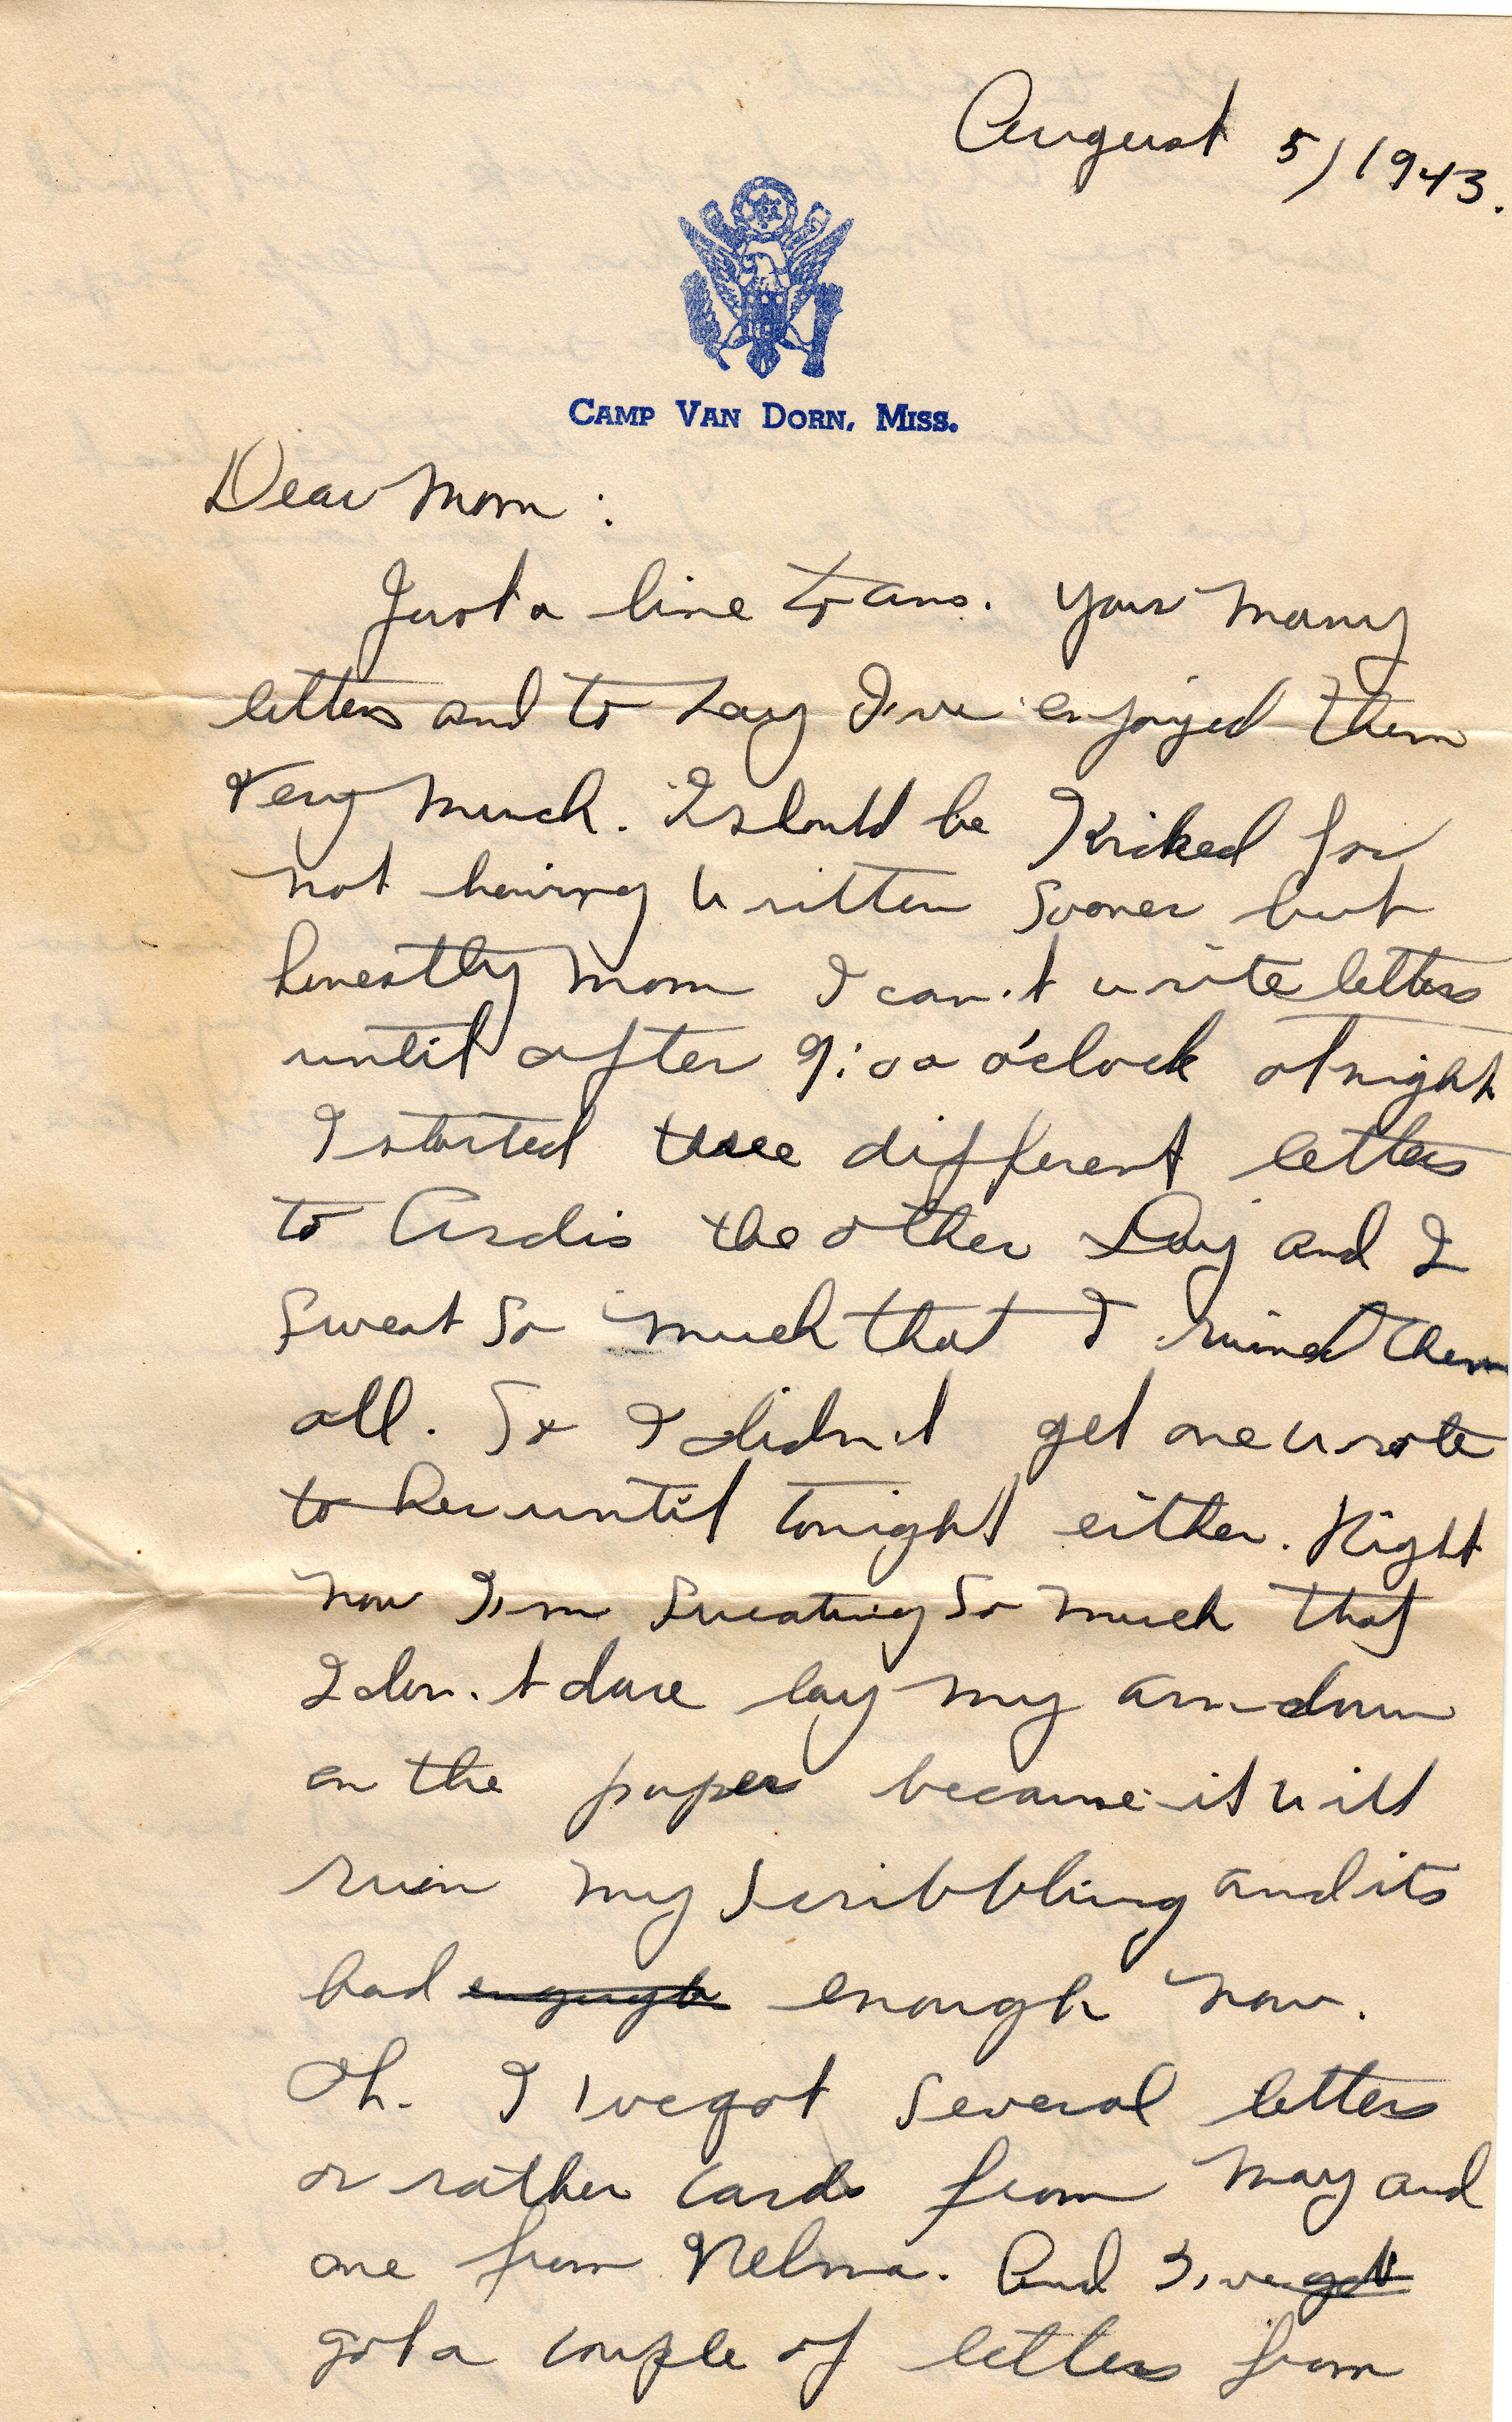 August 5, 1943.
CAMP VAN DORN, MISS.
Dear Mom:
Just a line to ans. your many
letters and to say I've enjoyed them
very much. I should be Kicked for
not having written sooner but
honestly mom I can't write letters
until after 9:00 o'clock at night
I started three different letters
to Ardis the other Day and I
sweat so much that I ruined them
all. So I didn't get one wrote
to her until tonight either. Right
now I'm sweating so much that
I don't dare lay my arm down
on the paper because it will
ruin my scribbling and its
bad enough enough now.
Oh. I 've got several letters
or rather cards from May and
one from Velma. And I've got
got a couple of letters from